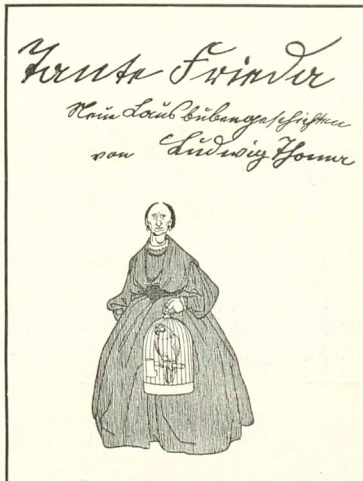 Tante Frieda
Neue Lausbubengeschichten
von Ludwig Thoma